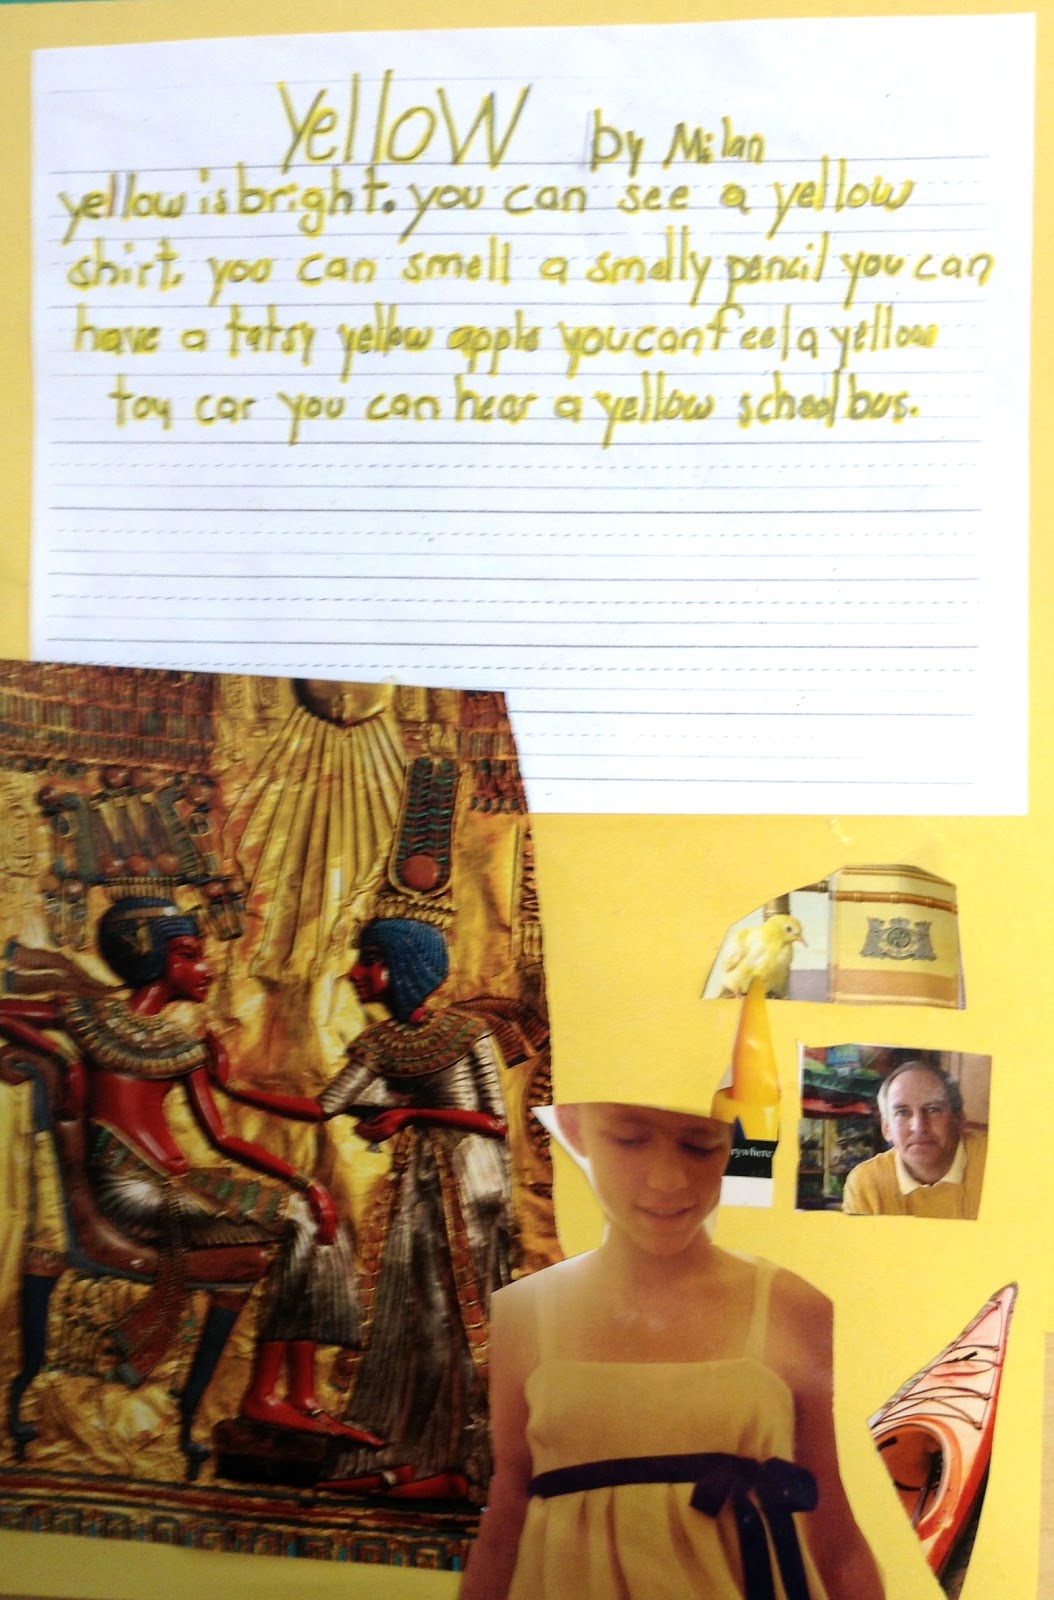 Yellow by Milan
yellow is bright. you can see a yellow
shirt. you can smell a smelly pencil you can
have a tatsy yellow apple you can feel a yellow
toy car you can hear a yellow school bus.
rywhere